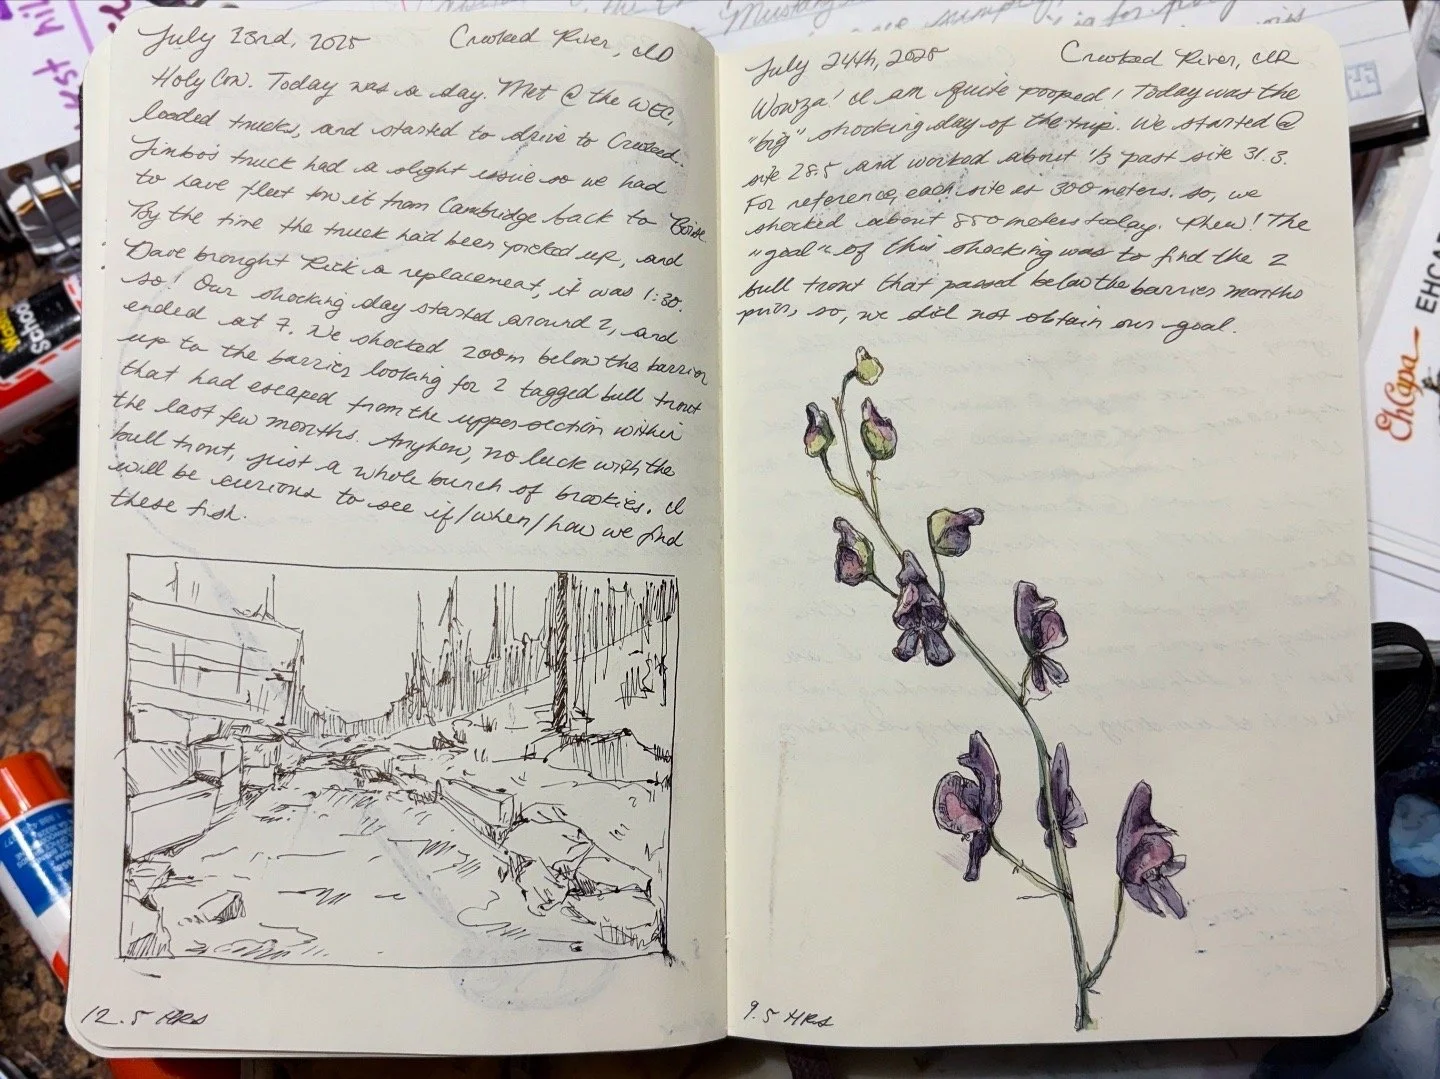 July 23rd, 2025 Crooked River, ID
Holy Cow. Today was a day. Met @ the WEC,
loaded trucks, and started to drive to Crooked.
Jimbo's truck had a slight issue so we had
to have fleet tow it from Cambridge back to Boise.
By the time the truck had been picked up, and
Dave brought Rick a replacement, it was 1:30.
so! Our shocking day started around 2, and
ended at 7. We shocked 200m below the barrier
up to the barrier looking for 2 tagged bull trout
that had escaped from the upper section within
the last few months. Anyhow, no luck with the
bull trout, just a whole bunch of brookies. I
will be curious to see if/when/how we find
these fish.
12.5 HRS
July 24th, 2025 Crooked River, ID
Wowza! I am quite pooped! Today was the
"big" shocking day of the trip. We started @
site 28.5 and worked about 1/3 past site 31.3.
For reference, each site is 300 meters. so, we
shocked about 850 meters today. Phew! The
"goal" of this shocking was to find the 2
bull trout that passed below the barrier months
prior, so, we did not obtain our goal.
9.5 HRS
EhCapa
EHCAP
Mustang
is for